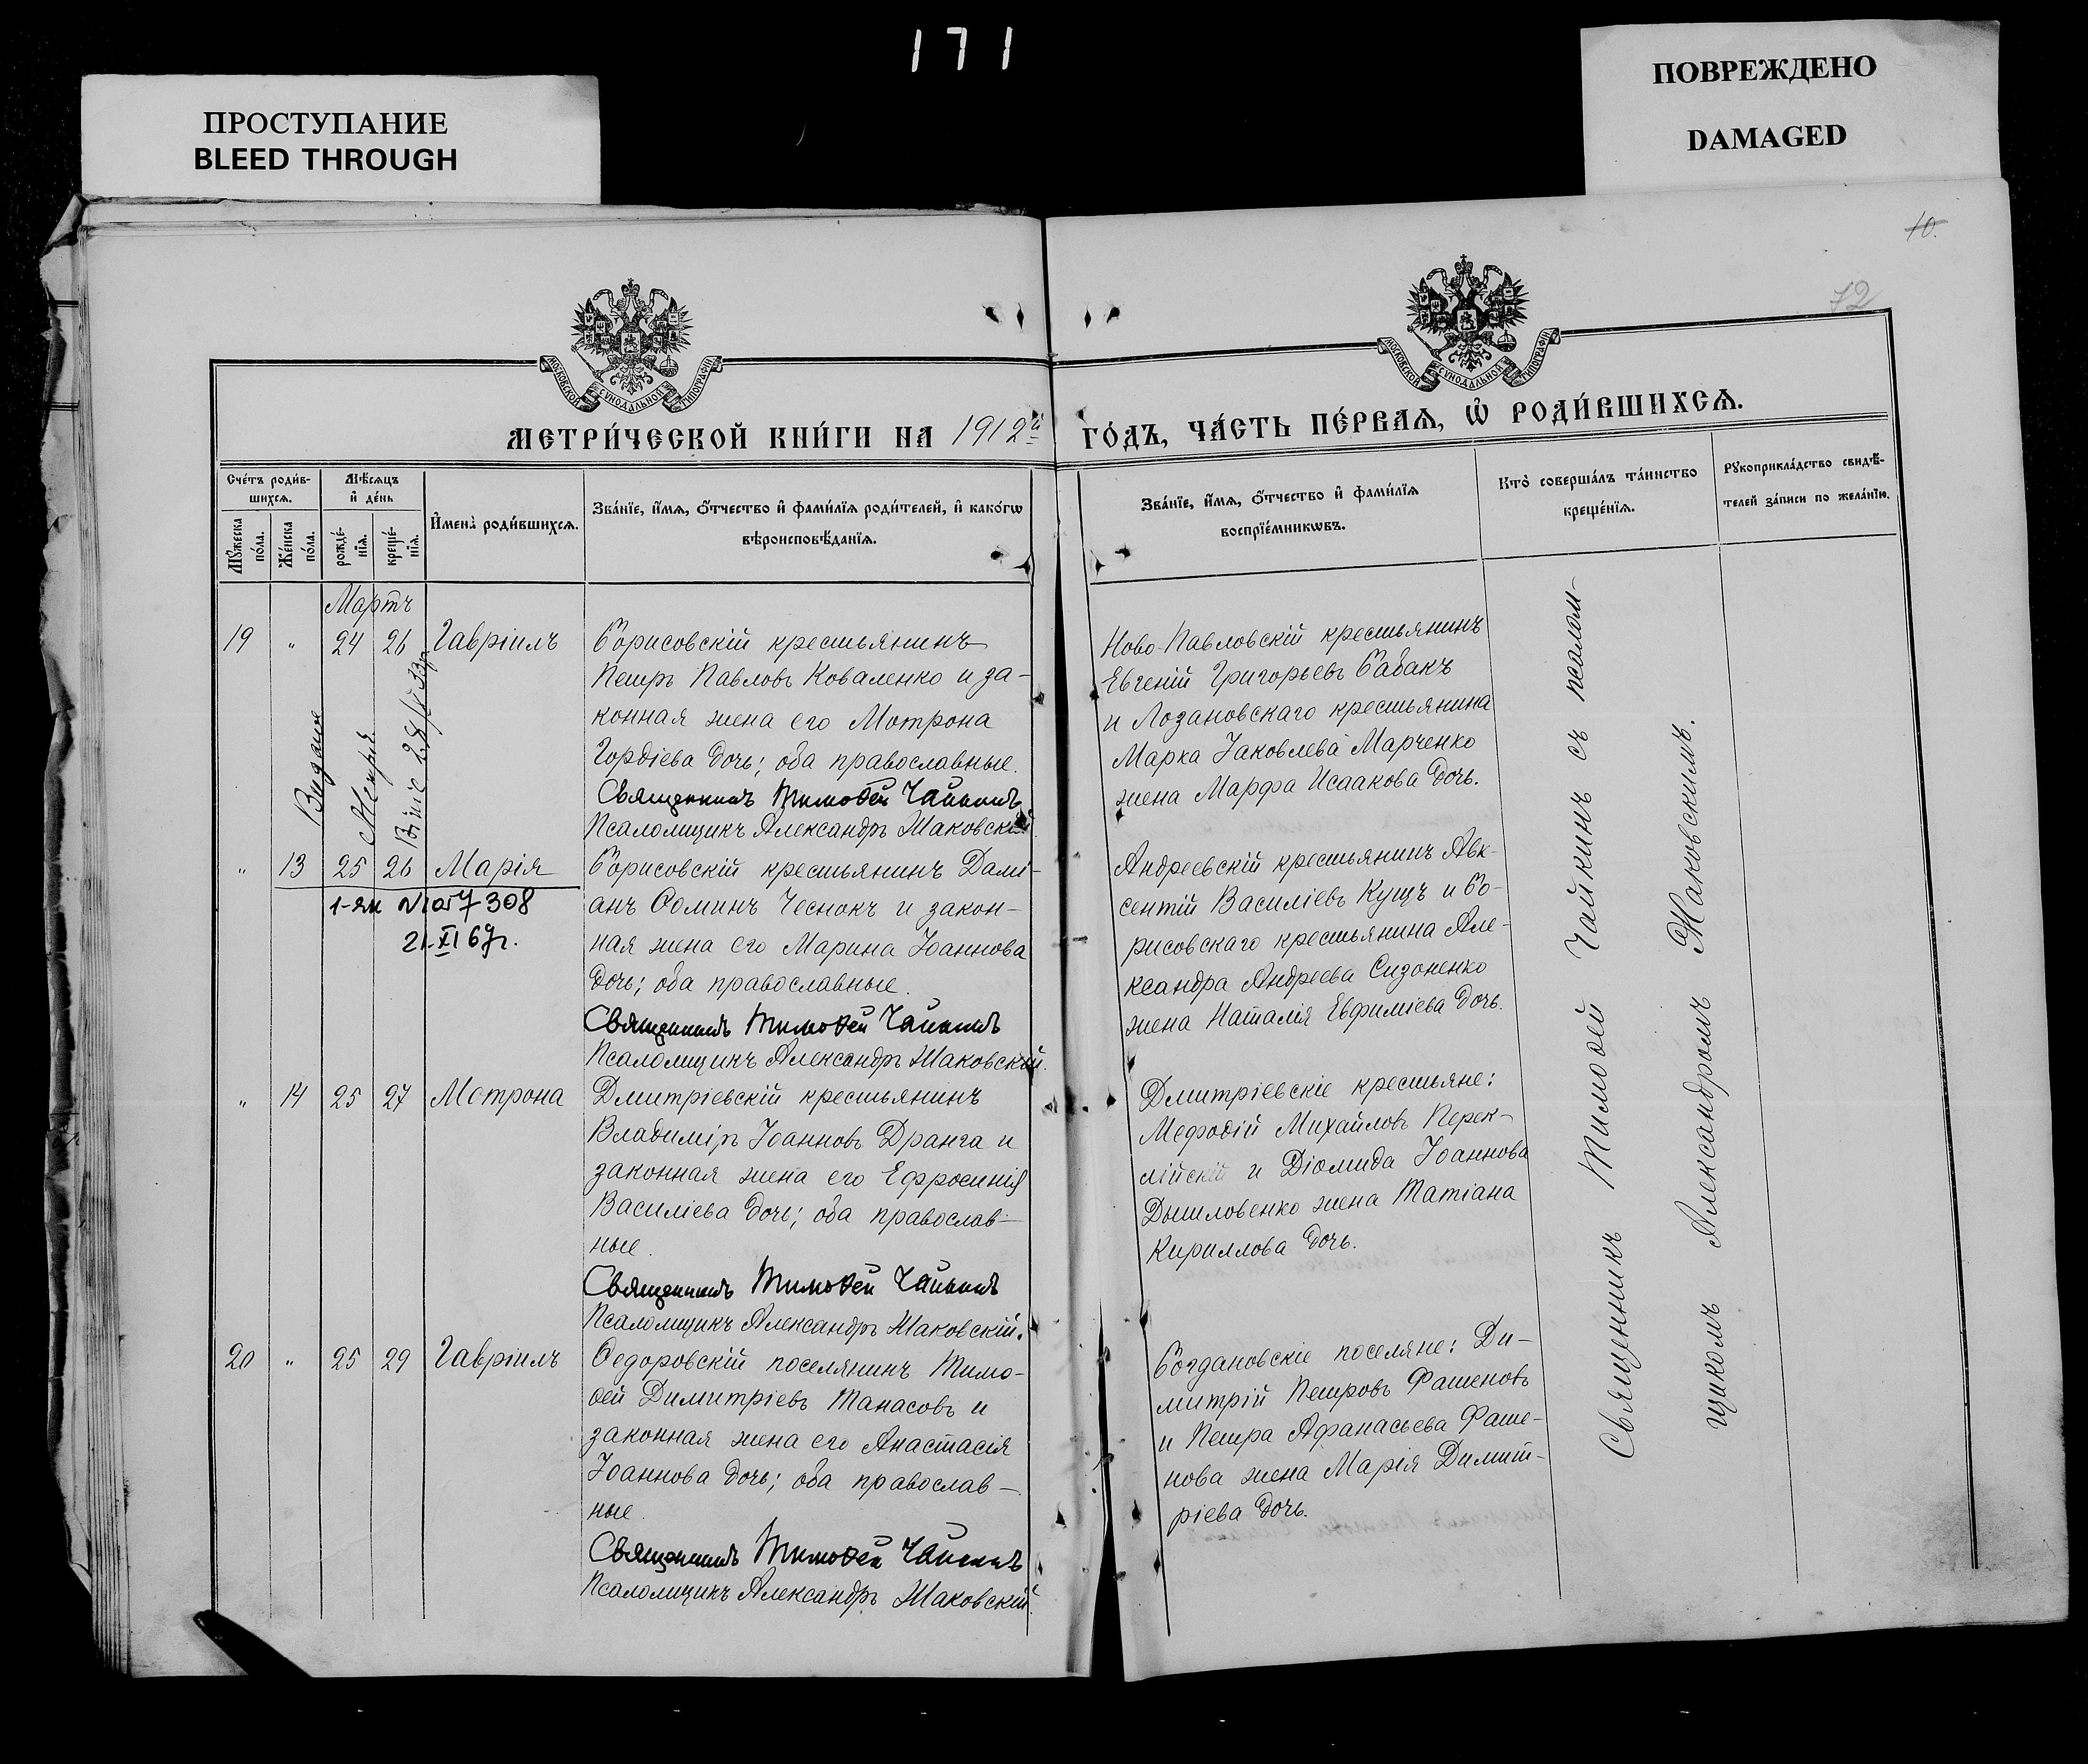 171
ПРОСТУПАНИЕ
BLEED THROUGH
ПОВРЕЖДЕНО
DAMAGED
10.
72
МОСКОВСКОЙ СѴНОДАЛЬНОЙ ТИПОГРАФІИ
МОСКОВСКОЙ СѴНОДАЛЬНОЙ ТИПОГРАФІИ
МЕТРИ́ЧЕСКОЙ КНИ́ГИ НА 1912й
ГО́ДЪ, ЧА́СТЬ ПЕ́РВАѦ, Ѡ҆ РОДИ́ВШИХСѦ.
Сче́тъ роди́в-
шихсѧ.
Мꙋ́жеска
по́ла.
Же́нска
по́ла.
Мѣ́сѧцъ
и҆ де́нь
рожде́-
нїѧ.
креще́-
нїѧ.
И҆мена̀ роди́вшихсѧ.
Зва́нїе, и҆́мѧ, ѻ҆́тчество и҆ фами́лїѧ роди́телей, и҆ како́гѡ
вѣроисповѣ́данїѧ.
Зва́нїе, и҆́мѧ, ѻ҆́тчество и҆ фами́лїѧ
воспрїе́мникѡвъ.
Кто̀ соверша́лъ та́инство
креще́нїѧ.
Рꙋкоприкла́дство свидѣ́-
телей за́писи по жела́нїю.
Мартъ
19 " 24 26 Гавріилъ
Борисовскій крестьянинъ
Петръ Павловъ Коваленко и за-
конная жена его Мотрона
Гордіева дочь; оба православные.
Священникъ Тимоѳей Чайкинъ
Псаломщикъ Александръ Жаковскій.
Ново-Павловскій крестьянинъ
Евгеній Григорьевъ Бабакъ
и Лозановскаго крестьянина
Марка Іаковлева Марченко
жена Марфа Исаакова дочь.
Видана
" 13 25 26 Марія
1-ЯИ №017308
21.XI 69г.
Борисовскій крестьянинъ Дамі-
анъ Ѳоминъ Чеснокъ и закон-
ная жена его Марина Іоаннова
дочь; оба православные.
Священникъ Тимоѳей Чайкинъ
Псаломщикъ Александръ Жаковскій.
Андреевскій крестьянинъ Авк-
сентій Василіевъ Кущъ и Бо-
рисовскаго крестьянина Але-
ксандра Андреева Сизоненко
жена Наталія Евфиміева дочь.
" 14 25 27 Мотрона
Дмитріевскій крестьянинъ
Владиміръ Іоанновъ Дранга и
законная жена его Ефросинія
Василіева дочь; оба православ-
ные.
Священникъ Тимоѳей Чайкинъ
Псаломщикъ Александръ Жаковскій.
Дмитріевскіе крестьяне:
Мефодій Михайловъ Перек-
лійскій и Діомида Іоаннова
Дышловенко жена Татіана
Кириллова дочь.
20 " 25 29 Гавріилъ
Ѳедоровскій поселянинъ Тимо-
ѳей Димитріевъ Танасовъ и
законная жена его Анастасія
Іоаннова дочь; оба православ-
ные.
Священникъ Тимоѳей Чайкинъ
Псаломщикъ Александръ Жаковскій.
Богдановскіе поселяне: Ди-
митрій Петровъ Фатеновъ
и Петра Афанасьева Фате-
нова жена Марія Димит-
ріева дочь.
Священникъ Тимоѳей Чайкинъ съ псалом-
щикомъ Александромъ Жаковскимъ.